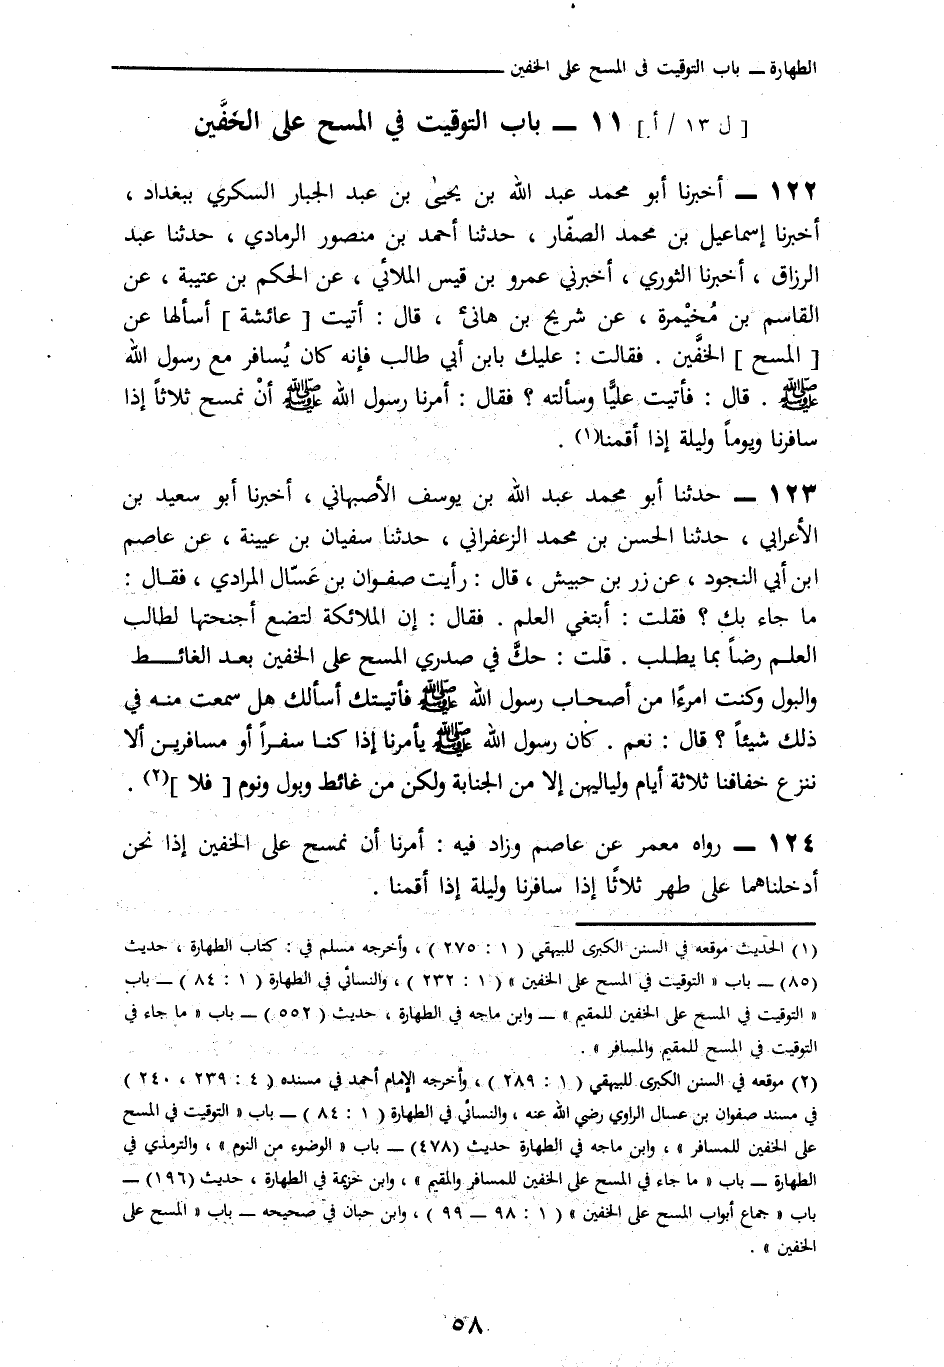 الطهارة ــ باب التوقيت فى المسح على الخفين
[ ل ١٣ / أ ] ١١ ــ باب التوقيت في المسح على الخفَّين
١٢٢ ــ أخبرنا أبو محمد عبد الله بن يحيىٰ بن عبد الجبار السكري ببغداد ،
أخبرنا إسماعيل بن محمد الصفّار ، حدثنا أحمد بن منصور الرمادي ، حدثنا عبد
الرزاق ، أخبرنا الثوري ، أخبرني عمرو بن قيس الملائي ، عن الحكم بن عتيبة ، عن
القاسم بن مُخيْمرة ، عن شريح بن هانئ ، قال : أتيت [ عائشة ] أسألها عن
[ المسح ] الخفَّين . فقالت : عليك بابن أبي طالب فإنه كان يُسافر مع رسول الله
ﷺ . قال : فأتيت عليًّا وسألته ؟ فقال : أمرنا رسول الله ﷺ أنْ نمسح ثلاثاً إذا
سافرنا ويوماً وليلة إذا أقمنا(١) .
١٢٣ ــ حدثنا أبو محمد عبد الله بن يوسف الأصبهاني ، أخبرنا أبو سعيد بن
الأعرابي ، حدثنا الحسن بن محمد الزعفراني ، حدثنا سفيان بن عيينة ، عن عاصم
ابن أبي النجود ، عن زر بن حبيش ، قال : رأيت صفوان بن عَسّال المرادي ، فقال :
ما جاء بك ؟ فقلت : أبتغي العلم . فقال : إن الملائكة لتضع أجنحتها لطالب
العلم رضاً بما يطلب . قلت : حكَّ في صدري المسح على الخفين بعد الغائط
والبول وكنت امرءًا من أصحاب رسول الله ﷺ فأتيتك أسألك هل سمعت منه في
ذلك شيئاً ؟ قال : نعم . كان رسول الله ﷺ يأمرنا إذا كنا سفراً أو مسافرين ألا
ننزع خفافنا ثلاثة أيام ولياليهن إلا من الجنابة ولكن من غائط وبول ونوم [ فلا ](٢) .
١٢٤ ــ رواه معمر عن عاصم وزاد فيه : أمرنا أن نمسح على الخفين إذا نحن
أدخلناهما على طهر ثلاثًا إذا سافرنا وليلة إذا أقمنا .
(١) الحديث موقعه في السنن الكبرى للبيهقي ( ١ : ٢٧٥ ) ، وأخرجه مسلم في : كتاب الطهارة ، حديث
(٨٥) ــ باب « التوقيت في المسح على الخفين » ( ١ : ٢٣٢ ) ، والنسائي في الطهارة ( ١ : ٨٤ ) ــ باب
« التوقيت في المسح على الخفين للمقيم » ــ وابن ماجه في الطهارة ، حديث ( ٥٥٢ ) ــ باب « ما جاء في
التوقيت في المسح للمقيم والمسافر » .
(٢) موقعه في السنن الكبرى للبيهقي ( ١ : ٢٨٩ ) ، وأخرجه الإمام أحمد في مسنده ( ٤ : ٢٣٩ ، ٢٤٠ )
في مسند صفوان بن عسال الراوي رضي الله عنه ، والنسائي في الطهارة ( ١ : ٨٤ ) ــ باب « التوقيت في المسح
على الخفين للمسافر » ، وابن ماجه في الطهارة حديث (٤٧٨) ــ باب « الوضوء من النوم » ، والترمذي في
الطهارة ــ باب « ما جاء في المسح على الخفين للمسافر والمقيم » ، وابن خزيمة في الطهارة ، حديث (١٩٦) ــ
باب « جماع أبواب المسح على الخفين » ( ١ : ٩٨ ــ ٩٩ ) ، وابن حبان في صحيحه ــ باب « المسح على
الخفين » .
٥٨